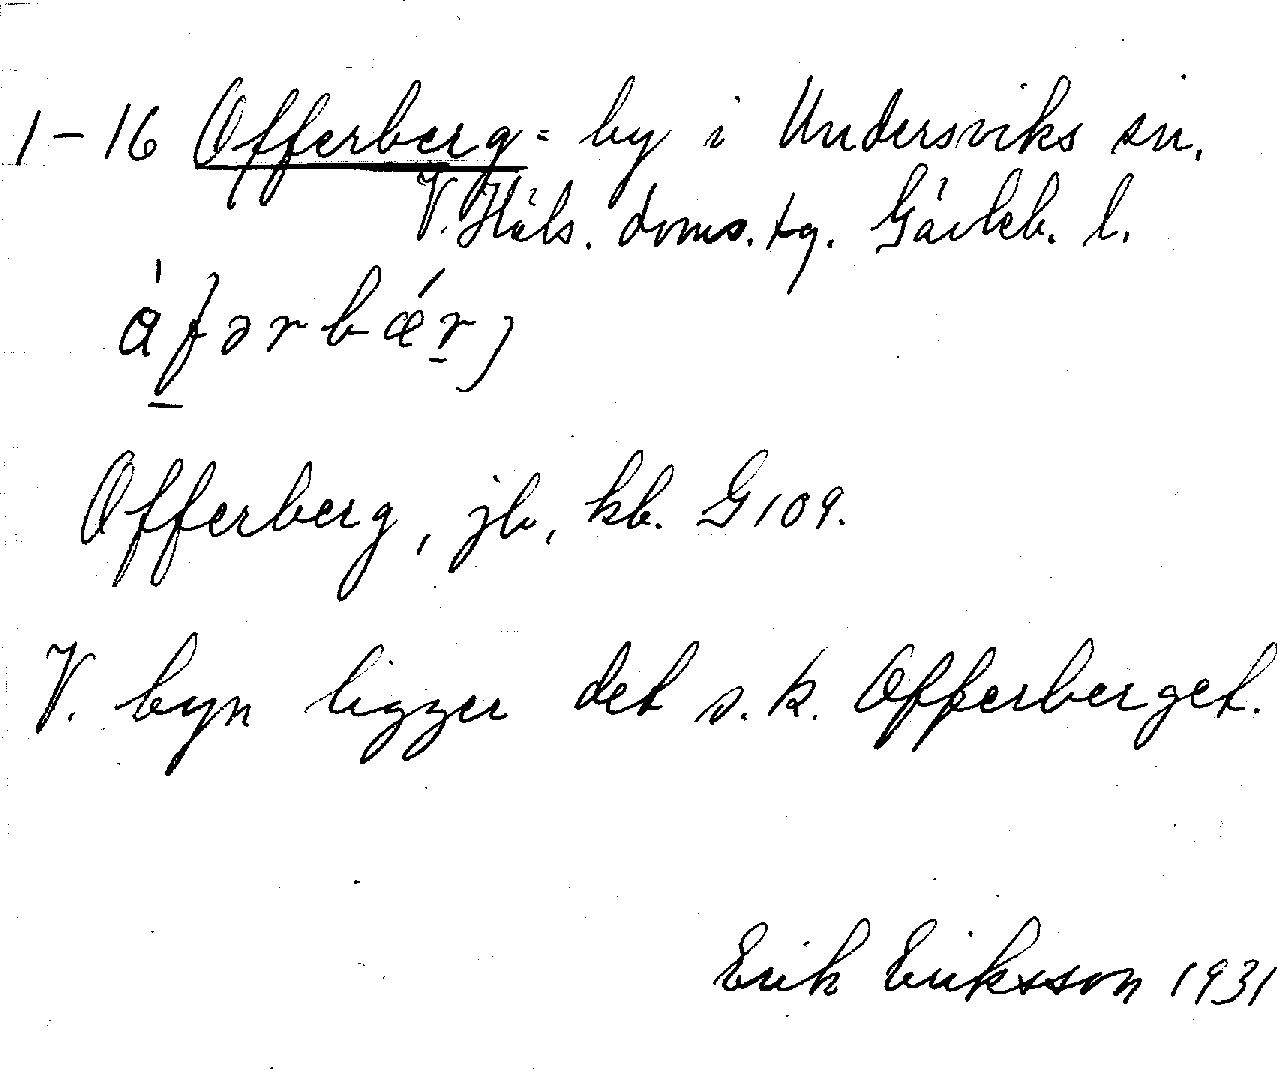 1-16 Offerberg = by i Undersviks sn.
V. Häls. doms. tg. Gävleb. l.
àfərbǽrj
Offerberg, jb, kb. G 109.
V. byn ligger det s.k. Offerberget.
Erik Eriksson 1931